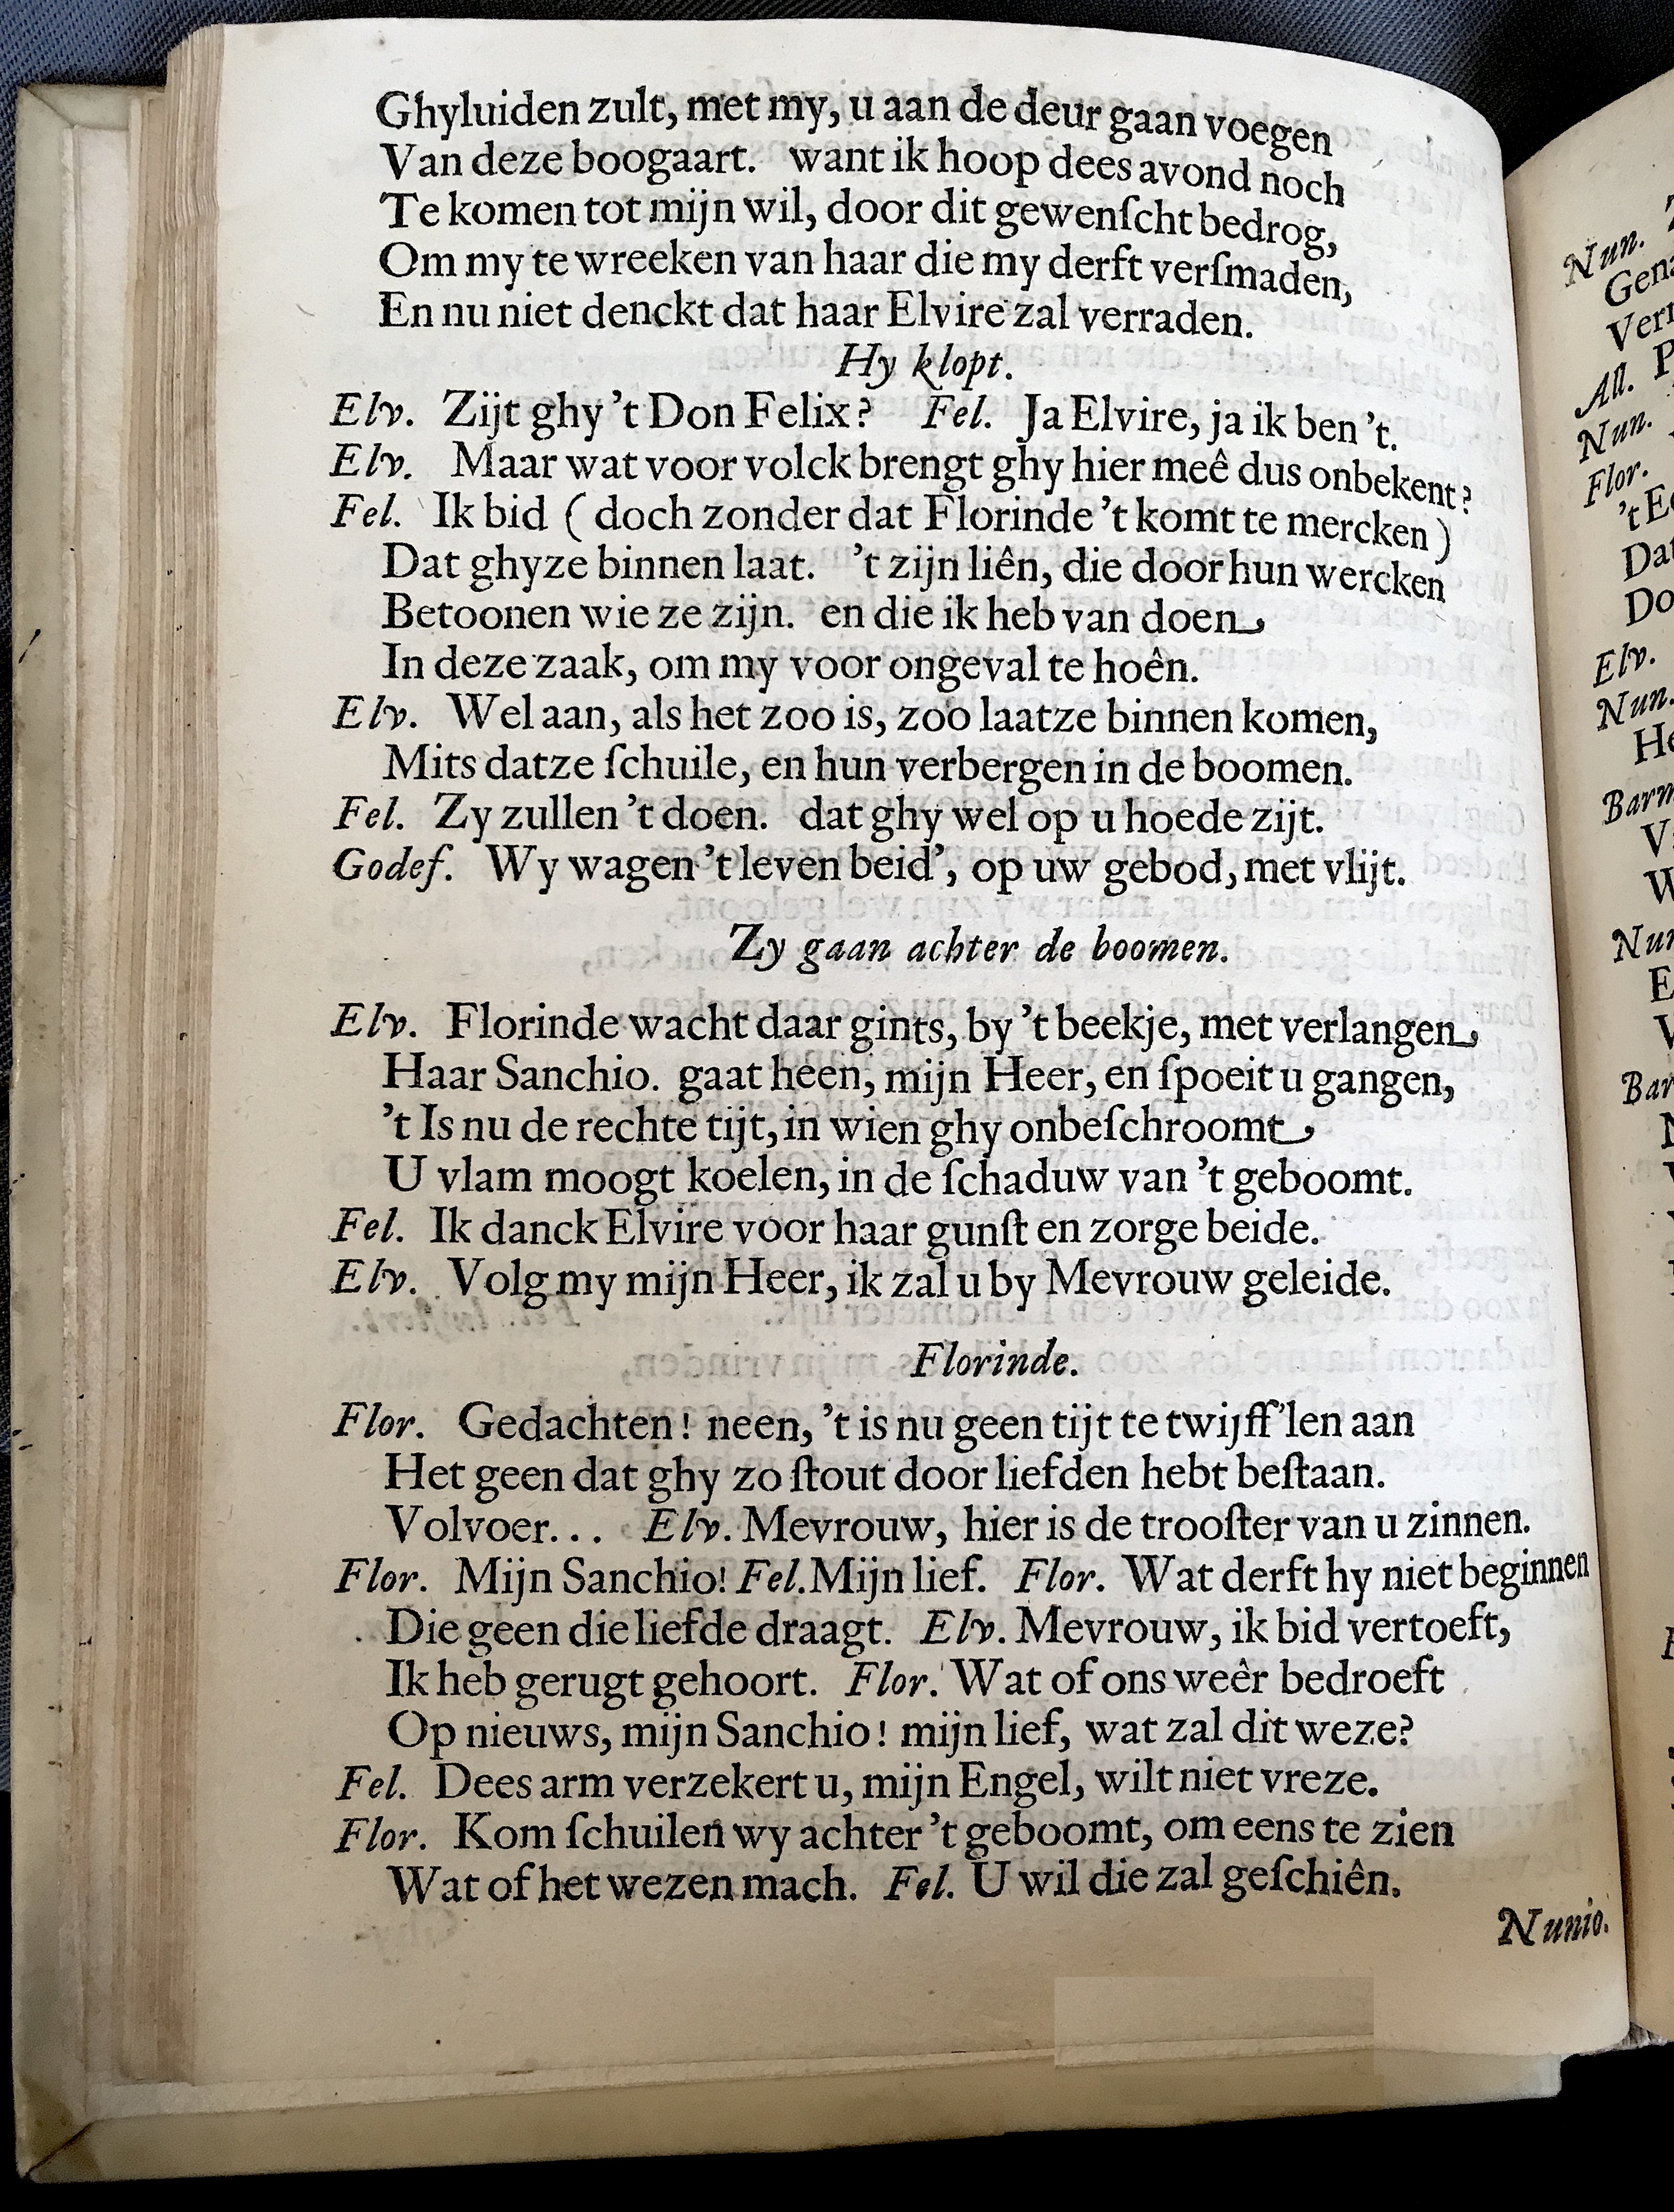 Ghyluiden zult, met my, u aan de deur gaan voegen
Van deze boogaart. want ik hoop dees avond noch
Te komen tot mijn wil, door dit gewenſcht bedrog,
Om my te wreeken van haar die my derft verſmaden,
En nu niet denckt dat haar Elvire zal verraden.
Hy klopt.
Elv. Zijt ghy 't Don Felix? Fel. Ja Elvire, ja ik ben 't.
Elv. Maar wat voor volck brengt ghy hier meê dus onbekent?
Fel. Ik bid ( doch zonder dat Florinde 't komt te mercken )
Dat ghyze binnen laat. 't zijn liên, die door hun wercken
Betoonen wie ze zijn. en die ik heb van doen
In deze zaak, om my voor ongeval te hoên.
Elv. Wel aan, als het zoo is, zoo laatze binnen komen,
Mits datze ſchuile, en hun verbergen in de boomen.
Fel. Zy zullen 't doen. dat ghy wel op u hoede zijt.
Godef. Wy wagen 't leven beid', op uw gebod, met vlijt.
Zy gaan achter de boomen.
Elv. Florinde wacht daar gints, by 't beekje, met verlangen
Haar Sanchio. gaat heen, mijn Heer, en ſpoeit u gangen,
't Is nu de rechte tijt, in wien ghy onbeſchroomt
U vlam moogt koelen, in de ſchaduw van 't geboomt.
Fel. Ik danck Elvire voor haar gunſt en zorge beide.
Elv. Volg my mijn Heer, ik zal u by Mevrouw geleide.
Florinde.
Flor. Gedachten! neen, 't is nu geen tijt te twijff'len aan
Het geen dat ghy zo ſtout door liefden hebt beſtaan.
Volvoer... Elv. Mevrouw, hier is de trooſter van u zinnen.
Flor. Mijn Sanchio! Fel. Mijn lief. Flor. Wat derft hy niet beginnen
Die geen die liefde draagt. Elv. Mevrouw, ik bid vertoeft,
Ik heb gerugt gehoort. Flor. Wat of ons weêr bedroeft
Op nieuws, mijn Sanchio! mijn lief, wat zal dit weze?
Fel. Dees arm verzekert u, mijn Engel, wilt niet vreze.
Flor. Kom ſchuilen wy achter 't geboomt, om eens te zien
Wat of het wezen mach. Fel. U wil die zal geſchiên.
Nunio.
Nun.
All.
Nun.
Flor.
Elv.
Nun.